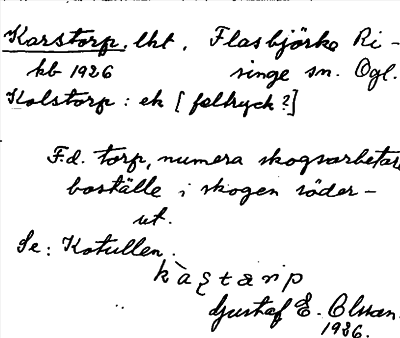 Karstorp, lht. Flasbjörke Ri-
kb 1926 singe sn. Ögl.
Kolstorp: ek [feltryck?]
F.d. torp, numera skogsarbetare
boställe i skogen söder-
ut.
Se: Kotullen.
kàştarp
Gustaf E. Olsson.
1926.